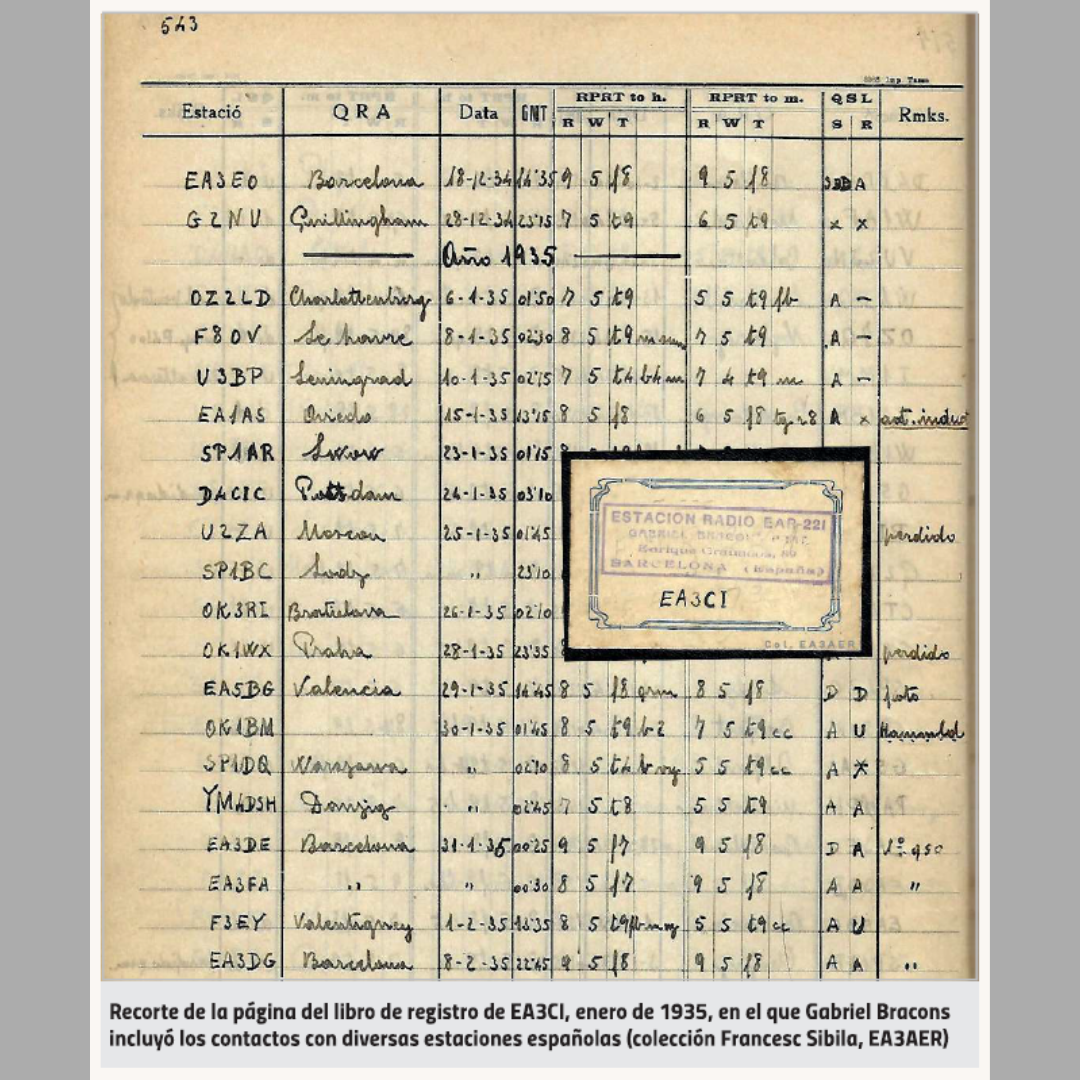 543
Estació QRA Data GMT RPRT to h. RPRT to m. QSL Rmks.
R W T R W T S R
EA3EO Barcelona 18-12-34 14'35 9 5 f8 9 5 f8 A
G2NV Guillingham 28-12-34 23'15 7 5 t9 6 5 t9 x x
Año 1935
OZ2LD Charlottenberg 6-1-35 01'50 7 5 t9 5 5 t9 fb A –
F8OV Le havre 8-1-35 02'30 8 5 t9 7 5 t9 A –
U3BP Leningrad 10-1-35 02'15 7 5 t4 7 4 t9 m A –
EA1AS Oviedo 15-1-35 13'15 8 5 f8 6 5 f8 A x
SP1AR Lwow 23-1-35 01'15
D4CIC Potsdam 24-1-35 03'10
U2ZA Moscou 25-1-35 01'45 perdido
SP1BC Lodz " 23'10
OK3RI Bratislava 26-1-35 02'10
OK1WX Praha 28-1-35 23'35 perdido
ESTACION RADIO EAR-221
GABRIEL
Enrique Granados, 89
BARCELONA (España)
EA3CI
Col. EA3AER
EA5BG Valencia 29-1-35 14'45 8 5 f8 8 5 f8 D D foto
OK1BM 30-1-35 01'45 8 5 t9 7 5 t9 cc A U
SP1DQ Warszawa " 8 5 t4 5 5 t9 cc A
YM4DSH Danzig " 02'45 7 5 t8 5 5 t9 A A
EA3DE Barcelona 31-1-35 00'25 9 5 f7 9 5 f8 D A 1º qso
EA3FA " " 00'30 8 5 f7 9 5 f8 A A "
F3EY Valentigney 1-2-35 8 5 t9 5 5 t9 cc A U
EA3DG Barcelona 8-2-35 22'45 9 5 f8 9 5 f8 A A "
Recorte de la página del libro de registro de EA3CI, enero de 1935, en el que Gabriel Bracons
incluyó los contactos con diversas estaciones españolas (colección Francesc Sibila, EA3AER)